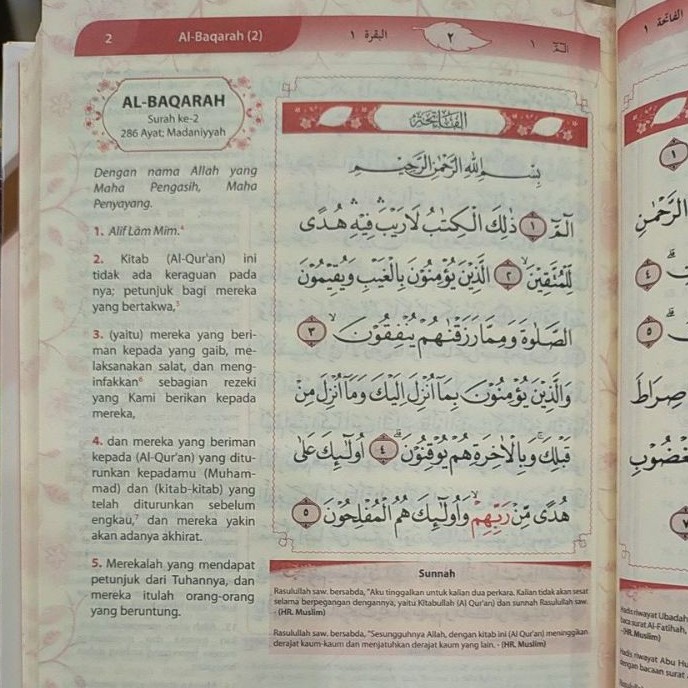 2 Al-Baqarah (2) البقرة ١ ٢ الۤمّۤ ١
AL-BAQARAH
Surah ke-2
286 Ayat; Madaniyyah
Dengan nama Allah yang
Maha Pengasih, Maha
Penyayang.
1. Alif Lām Mīm.⁴
2. Kitab (Al-Qur'an) ini
tidak ada keraguan pada
nya; petunjuk bagi mereka
yang bertakwa,⁵
3. (yaitu) mereka yang beri-
man kepada yang gaib, me-
laksanakan salat, dan meng-
infakkan⁶ sebagian rezeki
yang Kami berikan kepada
mereka,
4. dan mereka yang beriman
kepada (Al-Qur'an) yang ditu-
runkan kepadamu (Muham-
mad) dan (kitab-kitab) yang
telah diturunkan sebelum
engkau,⁷ dan mereka yakin
akan adanya akhirat.
5. Merekalah yang mendapat
petunjuk dari Tuhannya, dan
mereka itulah orang-orang
yang beruntung.
بِسْمِ اللّٰهِ الرَّحْمٰنِ الرَّحِيْمِ
الۤمّۤ ۝١ ذٰلِكَ الْكِتٰبُ لَا رَيْبَ ۛ فِيْهِ ۛ هُدًى
لِّلْمُتَّقِيْنَۙ ۝٢ الَّذِيْنَ يُؤْمِنُوْنَ بِالْغَيْبِ وَيُقِيْمُوْنَ
الصَّلٰوةَ وَمِمَّا رَزَقْنٰهُمْ يُنْفِقُوْنَۙ ۝٣
وَالَّذِيْنَ يُؤْمِنُوْنَ بِمَآ اُنْزِلَ اِلَيْكَ وَمَآ اُنْزِلَ مِنْ
قَبْلِكَۚ وَبِالْاٰخِرَةِ هُمْ يُوْقِنُوْنَۗ ۝٤ اُولٰۤىِٕكَ عَلٰى
هُدًى مِّنْ رَّبِّهِمْۙ وَاُولٰۤىِٕكَ هُمُ الْمُفْلِحُوْنَ ۝٥
Sunnah
Rasulullah saw. bersabda, "Aku tinggalkan untuk kalian dua perkara. Kalian tidak akan sesat
selama berpegangan dengannya, yaitu Kitabullah (Al Qur'an) dan sunnah Rasulullah saw.
- (HR. Muslim)
Rasulullah saw. bersabda, "Sesungguhnya Allah, dengan kitab ini (Al Qur'an) meninggikan
derajat kaum-kaum dan menjatuhkan derajat kaum yang lain. - (HR. Muslim)
الفاتحة ١
١
الرَّحْمٰنِ
٤
٥
صِرَاطَ
٧
Hadis riwayat Ubadah
baca surat Al-Fatihah,
-(HR.Muslim)
Hadis riwayat Abu Hu
dengan bacaan surat